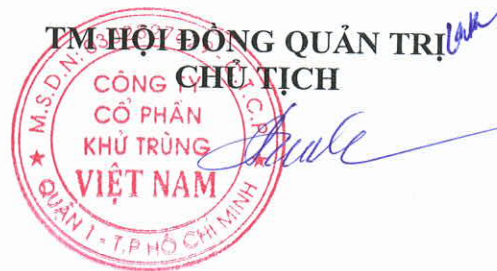 TM HỘI ĐỒNG QUẢN TRỊ
CHỦ TỊCH
CÔNG TY
CỔ PHẦN
KHỬ TRÙNG
VIỆT NAM
M.S.D.N:
C.T.C.P
QUẬN 1 - T.P HỒ CHÍ MINH